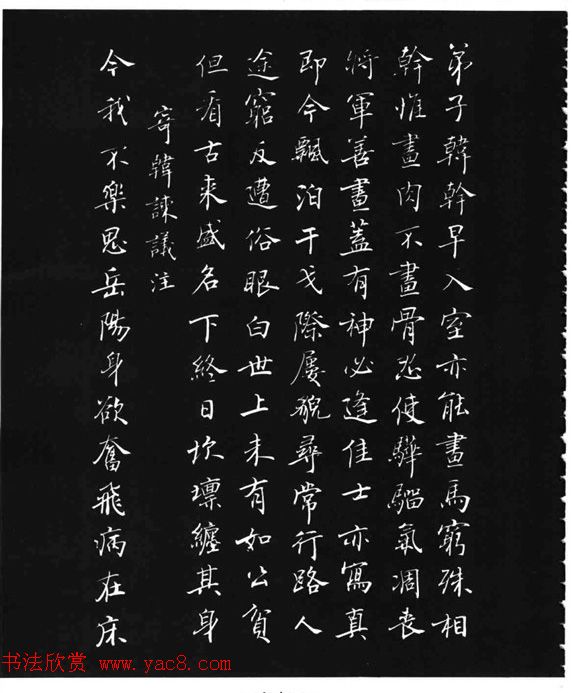 弟子韓幹早入室亦能畫馬窮殊相
幹惟畫肉不畫骨忍使驊騮氣凋喪
將軍善畫蓋有神必逢佳士亦寫真
即今飄泊干戈際屢貌尋常行路人
途窮反遭俗眼白世上未有如公貧
但看古來盛名下終日坎壈纏其身
寄韓諫議注
今我不樂思岳陽身欲奮飛病在床
书法欣赏 www.yac8.com